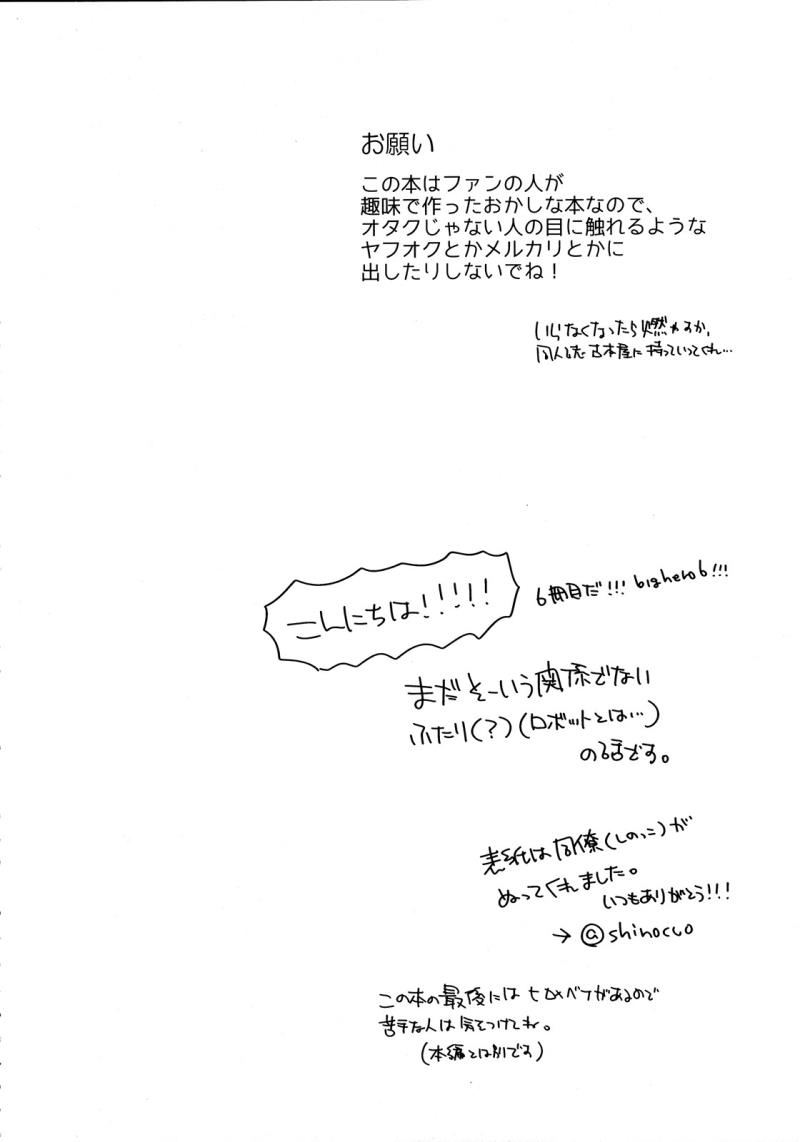 お願い
この本はファンの人が
趣味で作ったおかしな本なので、
オタクじゃない人の目に触れるような
ヤフオクとかメルカリとかに
出したりしないでね！
いらなくなったら燃やすか、
同人誌古本屋に持っていってくれ…
こんにちは!!!!!
6冊目だ!!! bighero6!!!
まだそーいう関係でない
ふたり(?)(ロボットとは…)
の話です。
表紙は同僚(しのっこ)が
ぬってくれました。
いつもありがとう!!!
→@shinocco
この本の最後にはヒロ×ベマがあるので
苦手な人は気をつけてね。
(本編とは別です)